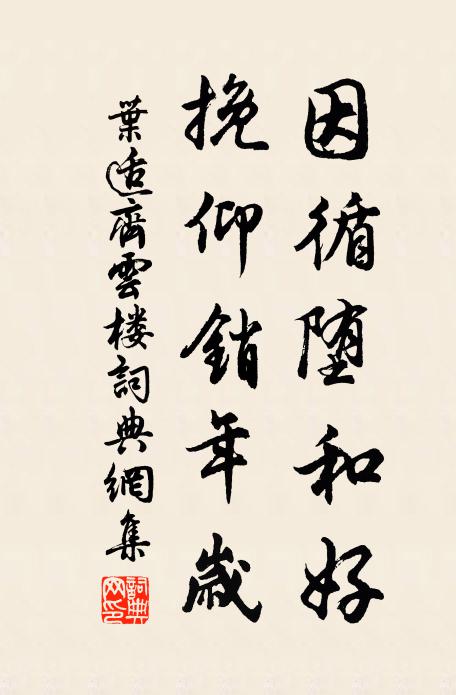 因循堕和好
挽仰銷年歲
葉適齊雲樓詞典網集
詞典網印